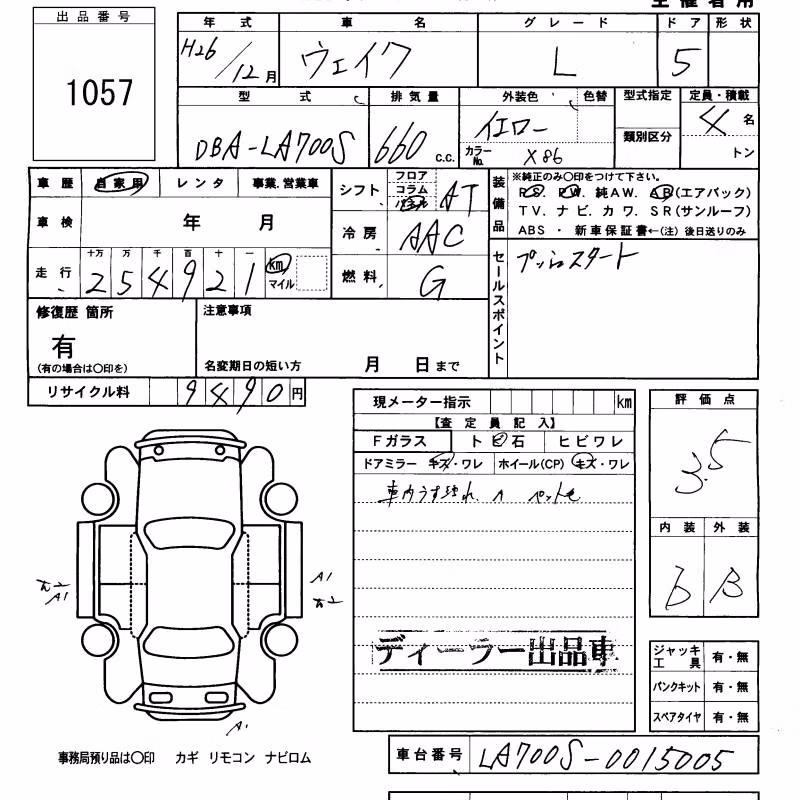 主催者用
出品番号
1057
年式 車名 グレード ドア 形状
H26/12月 ウェイク L 5
型式 排気量 外装色 色替 型式指定 定員・積載
DBA-LA700S 660 c.c. イエロー 類別区分 4 名
カラーNo. X86 トン
車歴 自家用 レンタ 事業.営業車
シフト フロア コラム AT
装備品 ※純正のみ〇印をつけて下さい。
PS. PW. 純AW. AB(エアバック)
TV. ナビ. カワ. SR(サンルーフ)
ABS ・ 新車保証書←(注) 後日送りのみ
車検 年 月
冷房 AAC
走行 十万 万 千 百 十 一 km マイル
254921
燃料 G
セールスポイント プッシュスタート
修復歴 箇所 注意事項
有
(有の場合は〇印を) 名変期日の短い方 月 日まで
リサイクル料 9490円
現メーター指示 km
【査定員記入】
Fガラス トビ石 ヒビワレ
ドアミラー キズ・ワレ ホイール(CP) キズ・ワレ
車内うす汚れ
評価点
3.5
内装 外装
B
A1
A1
ディーラー出品車
ジャッキ工具 有・無
パンクキット 有・無
スペアタイヤ 有・無
事務局預り品は〇印 カギ リモコン ナビロム
車台番号 LA700S-0015005